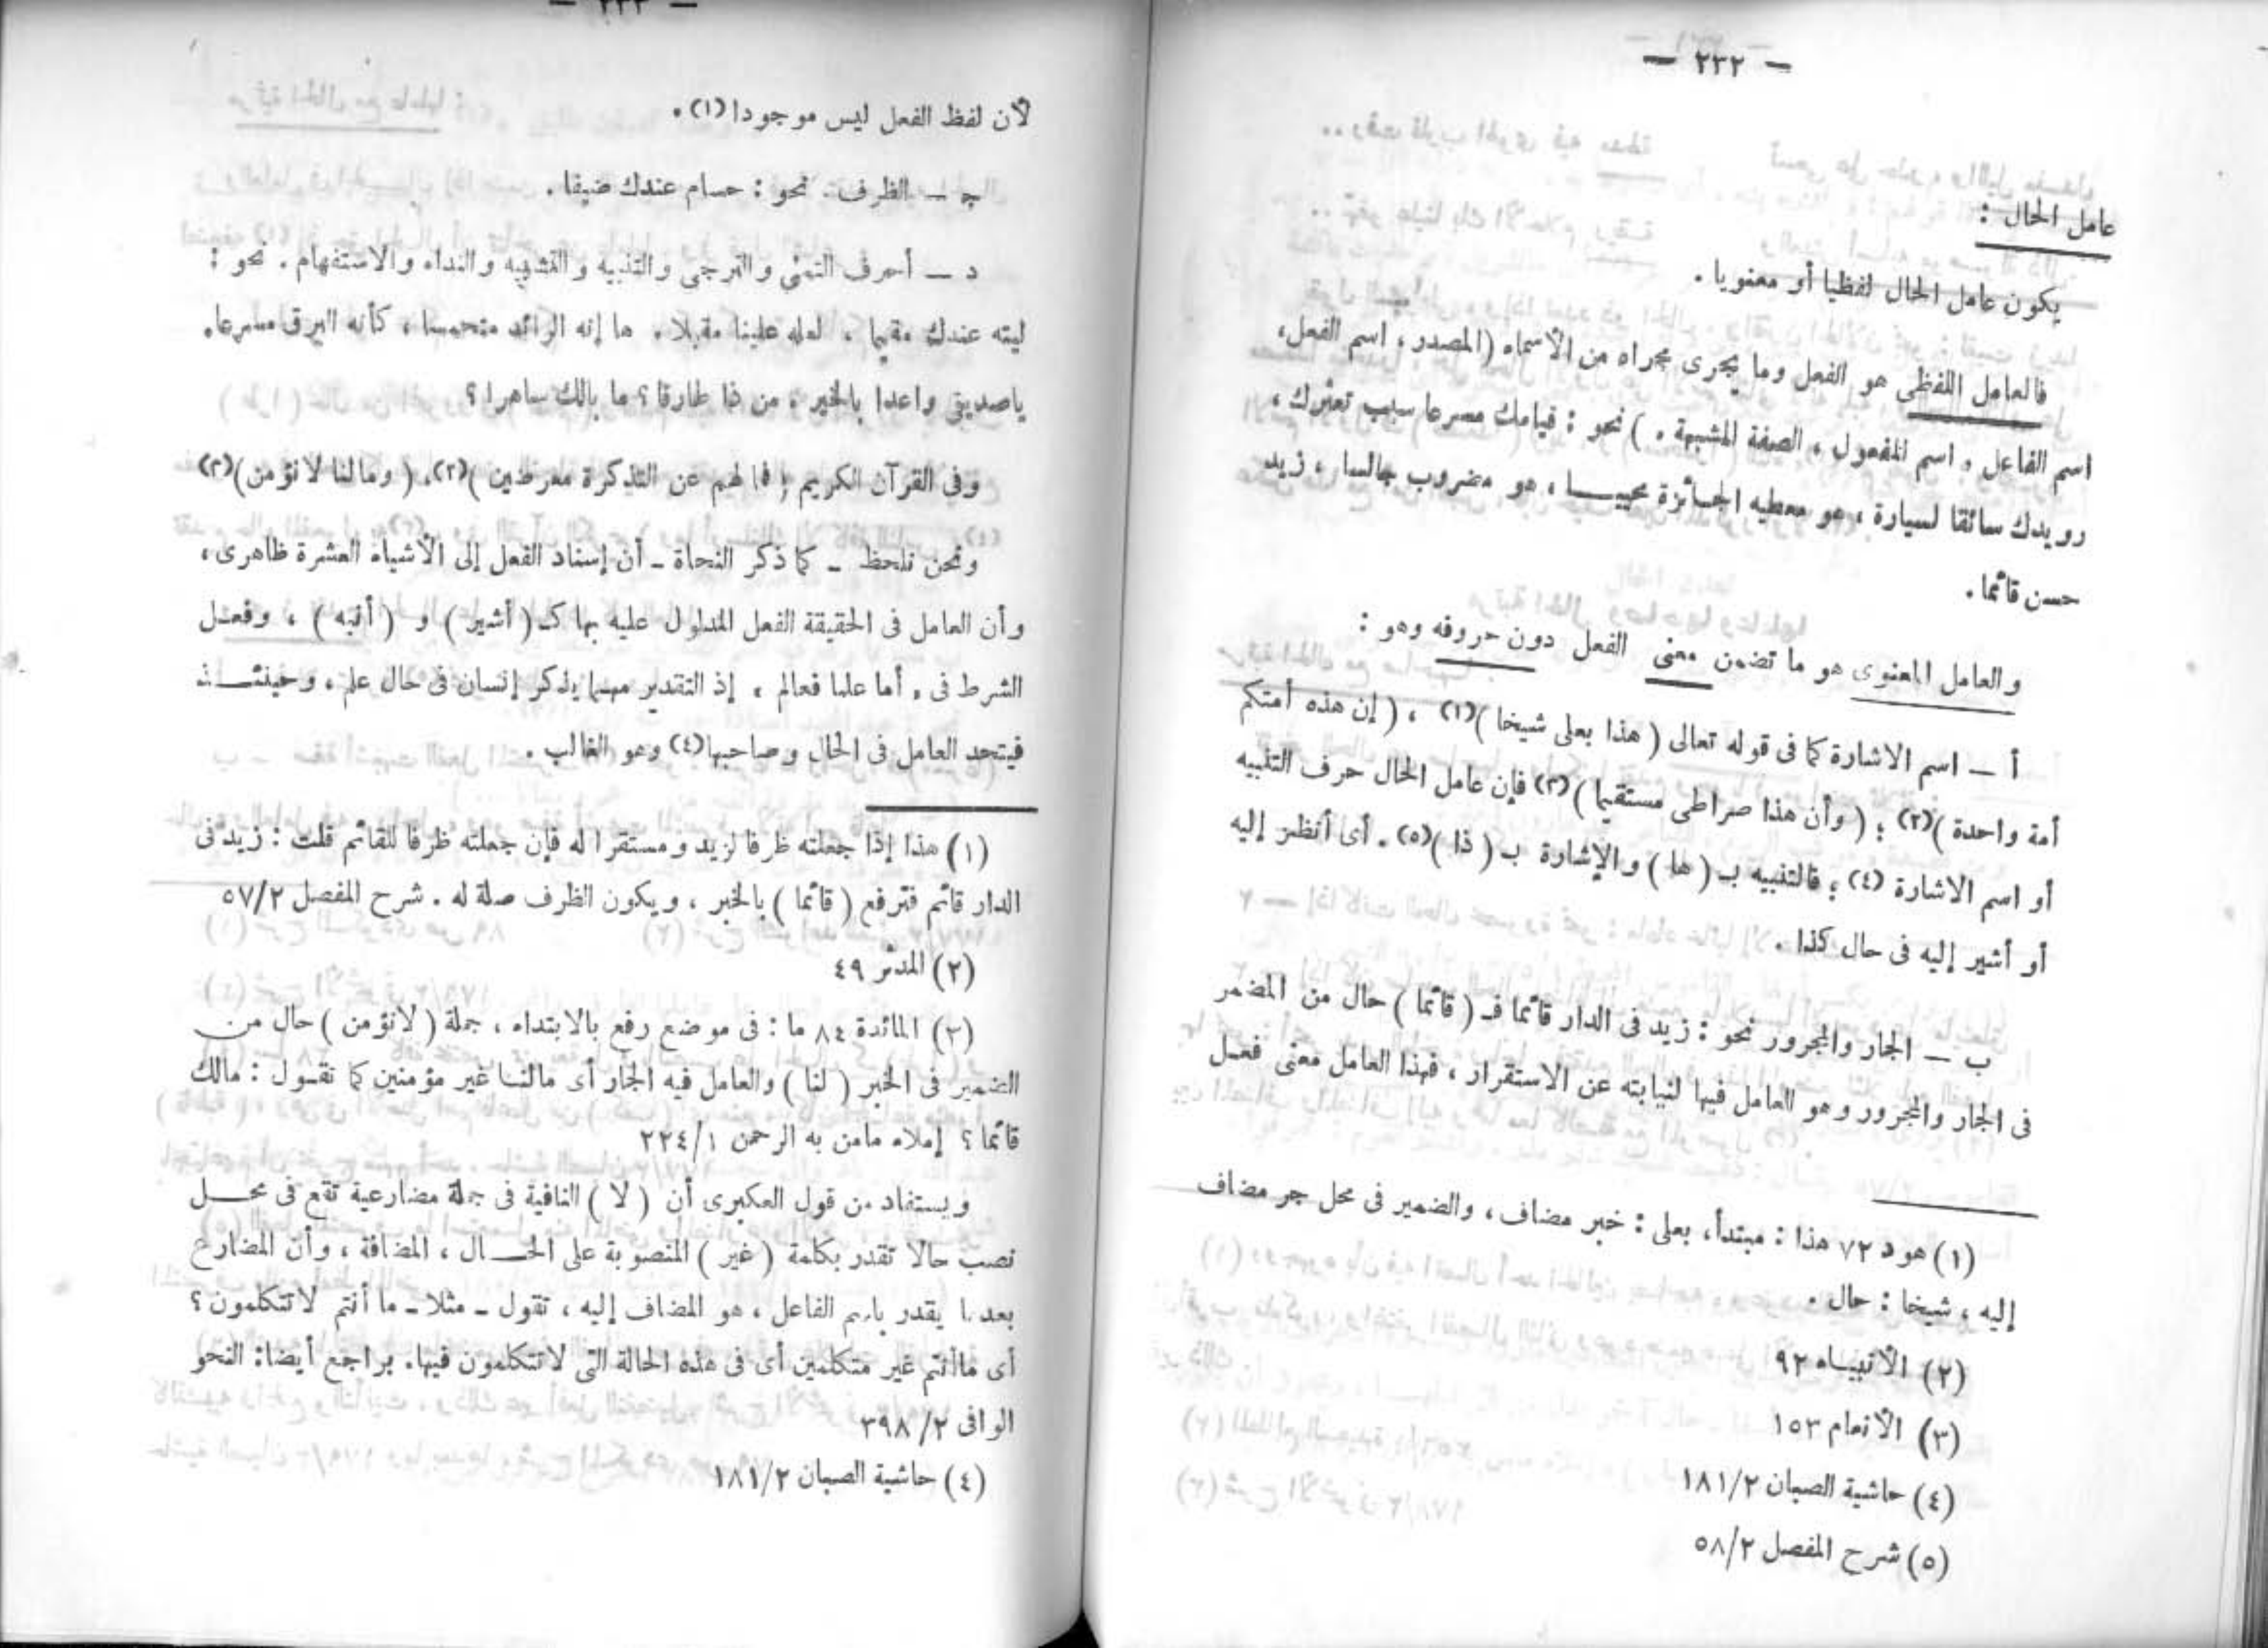 — ٢٣٢ —
عامل الحال :
يكون عامل الحال لفظيا أو معنويا .
فالعامل اللفظى هو الفعل وما يجرى مجراه من الأسماء (المصدر ، اسم الفعل،
اسم الفاعل ، اسم المفعول ، الصفة المشبهة . ) نحو : قيامك مسرعا سبب تعثرك ،
رويدك سائقا لسيارة ، هو معطيه الجائزة محييا ، هو مضروب جالسا ، زيد
حسن قائما .
والعامل المعنوى هو ما تضمن معنى الفعل دون حروفه وهو :
أ — اسم الاشارة كما فى قوله تعالى ( هذا بعلى شيخا )(١) ، ( إن هذه أمتكم
أمة واحدة )(٢) ؛ ( وأن هذا صراطى مستقيما )(٣) فإن عامل الحال حرف التنبيه
أو اسم الاشارة (٤) ؛ فالتنبيه بـ ( ها ) والإشارة بـ ( ذا )(٥) . أى أنظر إليه
أو أشير إليه فى حال كذا .
ب — الجار والمجرور نحو : زيد فى الدار قائما فـ ( قائما ) حال من المضمر
فى الجار والمجرور وهو العامل فيها لنيابته عن الاستقرار ، فهذا العامل معنى فعل
(١) هود ٧٢ هذا : مبتدأ، بعلى : خبر مضاف ، والضمير فى محل جر مضاف
إليه ، شيخا : حال .
(٢) الأنبياء ٩٢
(٣) الأنعام ١٥٣
(٤) حاشية الصبان ١٨١/٢
(٥) شرح المفصل ٥٨/٢
— ٢٣٣ —
لأن لفظ الفعل ليس موجودا (١) .
جـ — الظرف . نحو : حسام عندك ضيفا .
د — أحرف التمنى والترجى والتنبيه والتشبيه والنداء والاستفهام . نحو :
ليته عندك مقيما ، لعله علينا مقبلا . ها إنه الرائد متحمسا ، كأنه البرق مسرعا،
ياصديقى واعدا بالخير ، من ذا طارقا ؟ ما بالك ساهرا ؟
وفى القرآن الكريم ( فما لهم عن التذكرة معرضين )(٢)، ( ومالنا لا نؤمن )(٣)
ونحن نلحظ ـ كما ذكر النحاة ـ أن إسناد الفعل إلى الأشياء العشرة ظاهرى ،
وأن العامل فى الحقيقة الفعل المدلول عليه بها كـ ( أشير ) و ( أنبه ) ، وفعل
الشرط فى ، أما علما فعالم ، إذ التقدير مهما يذكر إنسان فى حال علم ، وحينئذ
فيتحد العامل فى الحال وصاحبها (٤) وهو الغالب .
(١) هذا إذا جعلته ظرفا لزيد ومستقرا له فإن جعلته ظرفا للقائم قلت : زيد فى
الدار قائم فترفع ( قائما ) بالخبر ، ويكون الظرف صلة له . شرح المفصل ٥٧/٢
(٢) المدثر ٤٩
(٣) المائدة ٨٤ ما : فى موضع رفع بالابتداء ، جملة ( لانؤمن ) حال من
الضمير فى الخبر ( لنا ) والعامل فيه الجار أى مالنا غير مؤمنين كما نقول : مالك
قائما ؟ إملاء مامن به الرحمن ٢٢٤/١
ويستفاد من قول العكبرى أن ( لا ) النافية فى جملة مضارعية تقع فى محل
نصب حالا تقدر بكلمة ( غير ) المنصوبة على الحال ، المضافة ، وأن المضارع
بعدها يقدر باسم الفاعل ، هو المضاف إليه ، تقول ـ مثلا ـ ما أنتم لاتتكلمون ؟
أى ماأنتم غير متكلمين أى فى هذه الحالة التى لاتتكلمون فيها. يراجع أيضا: النحو
الوافى ٢/ ٣٩٨
(٤) حاشية الصبان ١٨١/٢